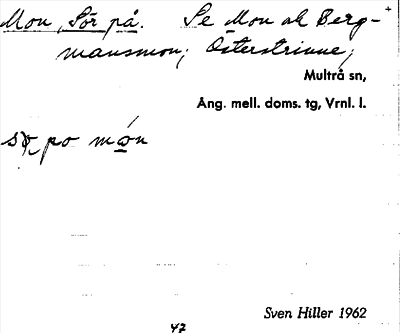 Mon, Sör på. Se Mon ol Berg-
mansmon; Österstrinne;
Multrå sn,
Ång. mell. doms. tg, Vrnl. l.
po
Sven Hiller 1962
47